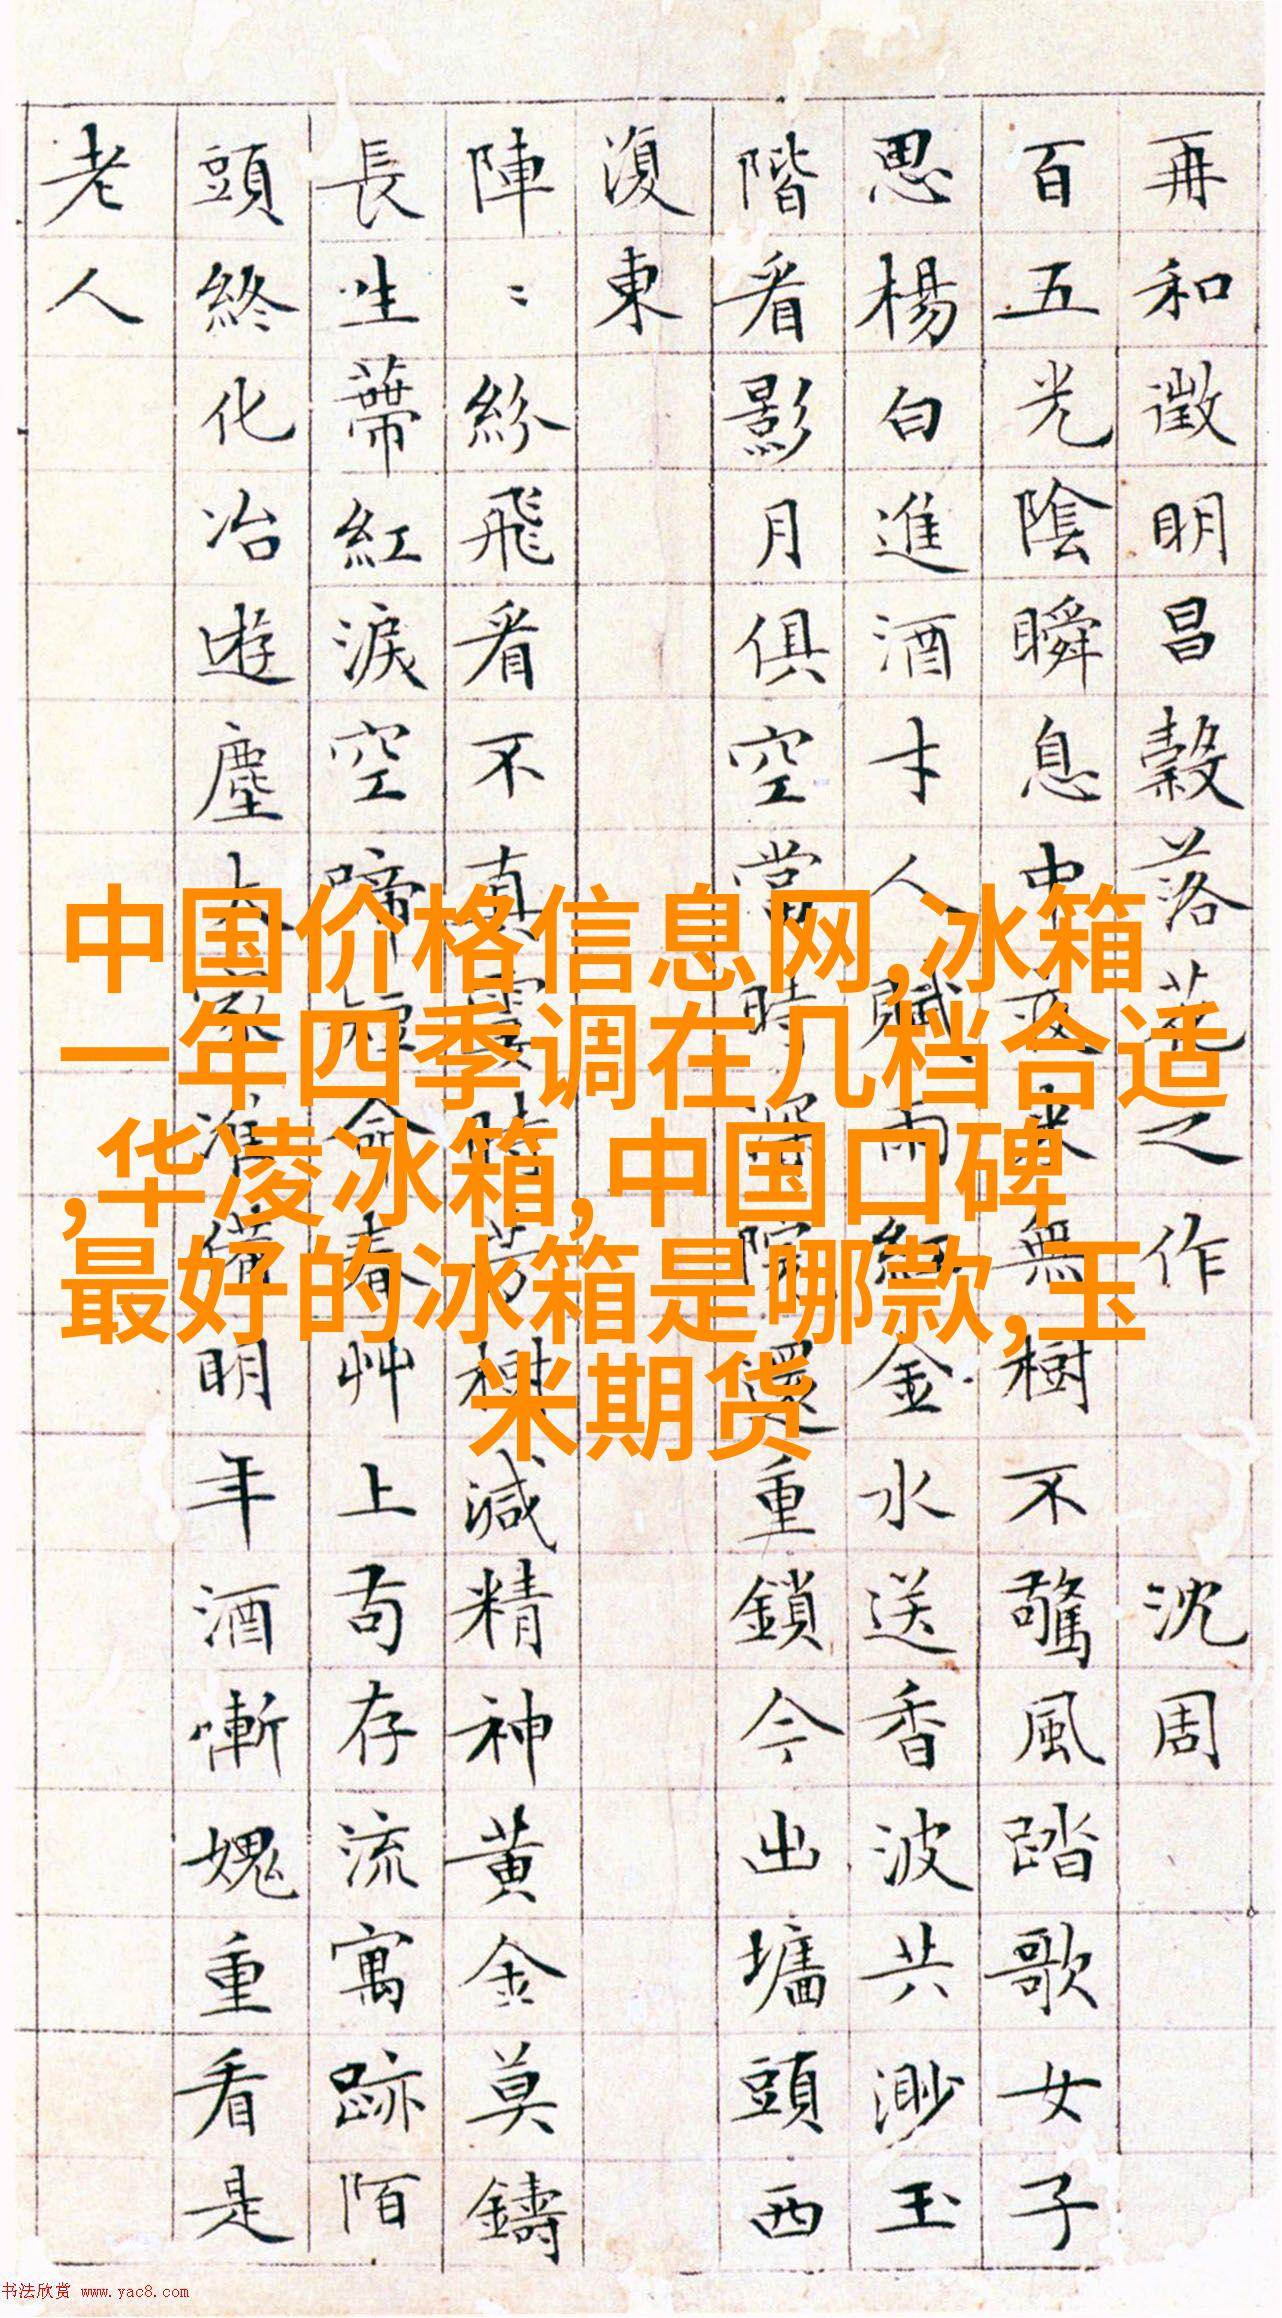 再和徵明昌穀落花之作 沈周
百五光陰瞬息中夜来無樹不驚風踏歌女子
思楊白進酒才人賦雨紅金水送香波共渺玉
階看影月俱空當時深院還重鎖今出墻頭西
復東
陣〻紛飛看不真霎時芳樹減精神黄金莫鑄
長生蒂紅淚空啼短命春艸上苟存流寓跡陌
頭終化冶遊塵大家準備明年酒慚媿重看是
老人
中国价格信息网,冰箱
一年四季调在几档合适
,华凌冰箱,中国口碑
最好的冰箱是哪款,玉
米期货
书法欣赏 www.yac8.com